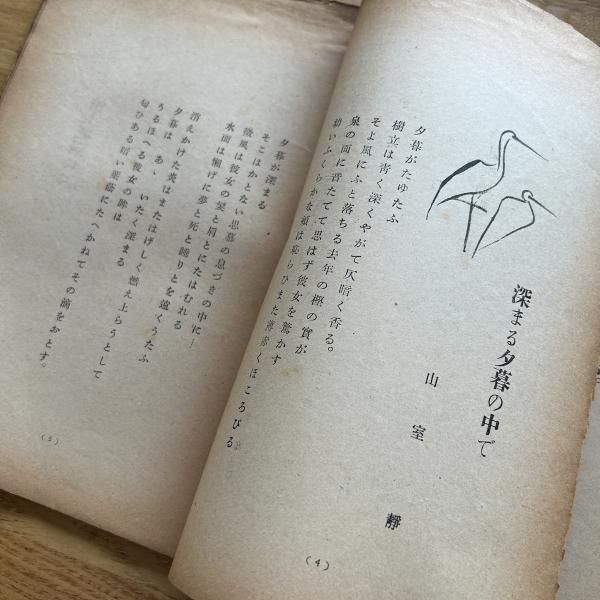 深まる夕暮の中で
山室靜
夕暮がたゆたふ
樹立は靑く深くやがて仄暗く香る。
そよ風にふと落ちる去年の樫の實が
泉の面に音たてて思はず彼女を驚かす
幼いふくらかな頰は恥らひまた薄赤くほころびる
(4)
夕暮が深まる
そこはかとない思慕の息づきの中に…
微風は彼女の髮と肩とにたはむれる
水面は懶げに夢と死と睡りとを遠くうたふ
消えかけた炎はまたはげしく燃え上らうとして
夕暮は あゝ いたく深まる
うるほへる彼女の眸は
匂ひある暗い薔薇にたへかねてその滴をおとす。
(5)